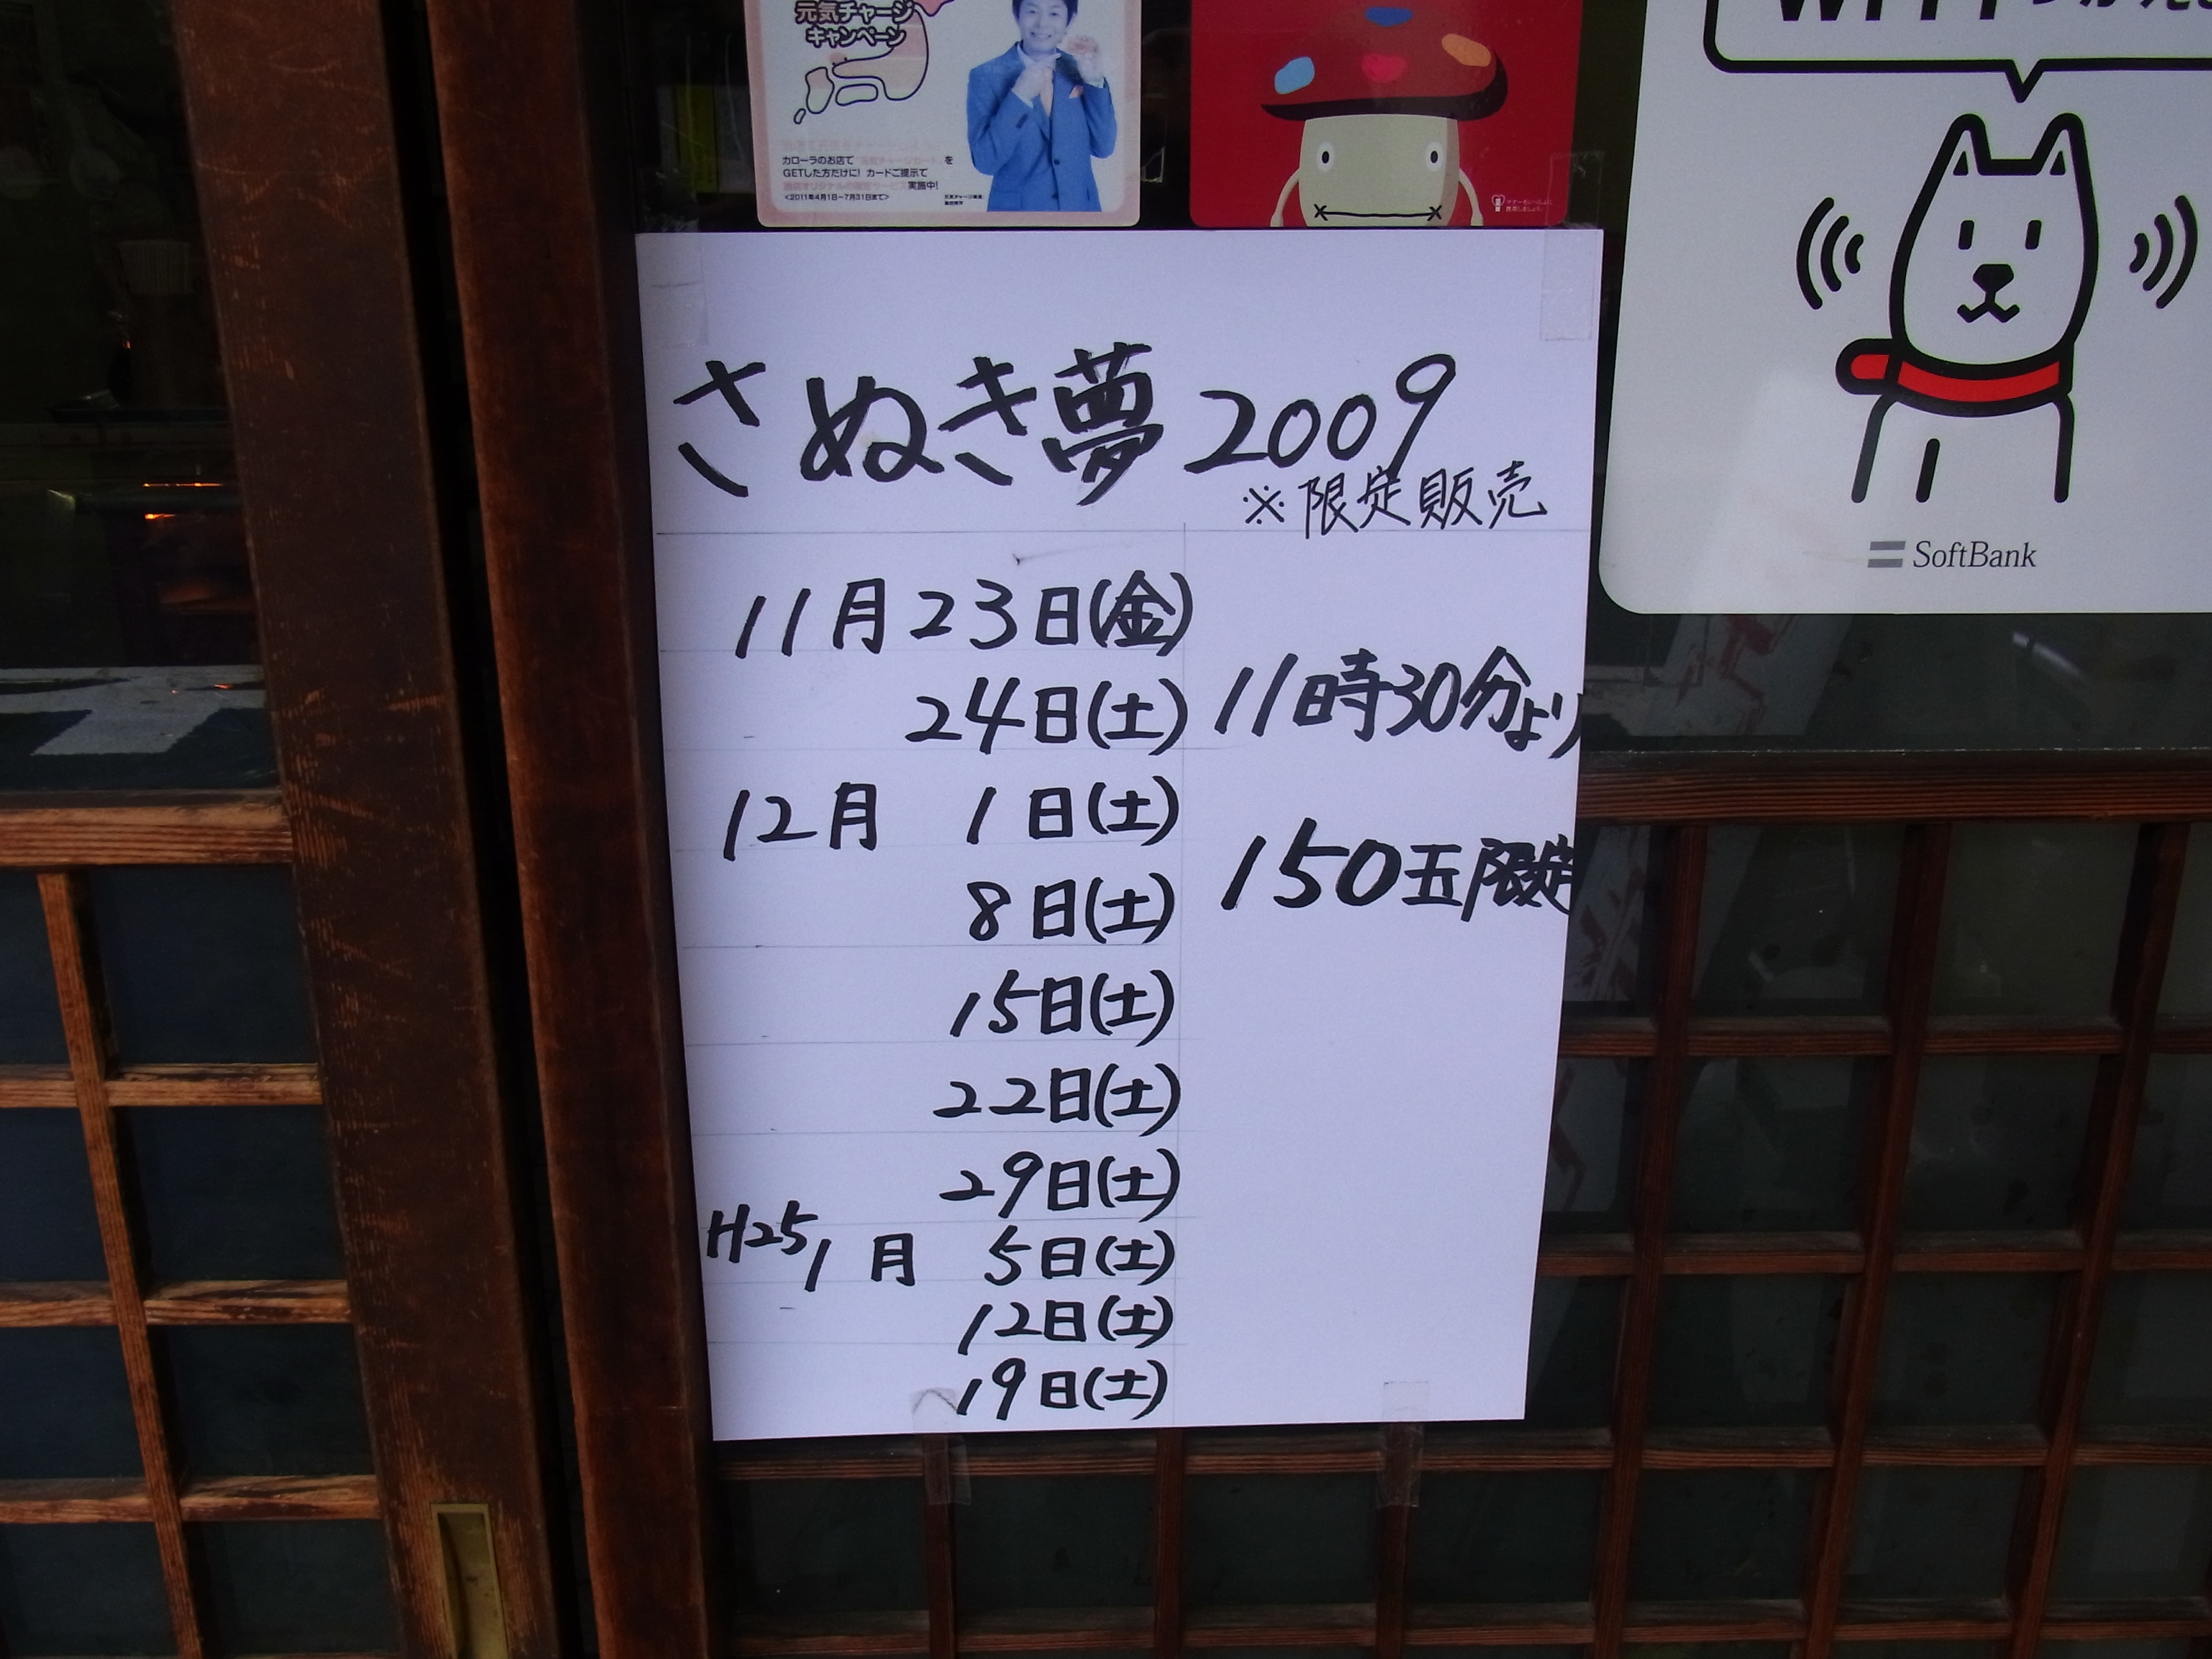 元気チャージ
キャンペーン
カローラのお店で「元気チャージカード」を
GETした方だけに! カードご提示で
実施中!
<2011年4月1日~7月31日まで>
SoftBank
さぬき夢2009
※限定販売
11月23日(金)
24日(土)
11時30分より
12月 1日(土)
8日(土)
150玉限定
15日(土)
22日(土)
29日(土)
H25 1月 5日(土)
12日(土)
19日(土)